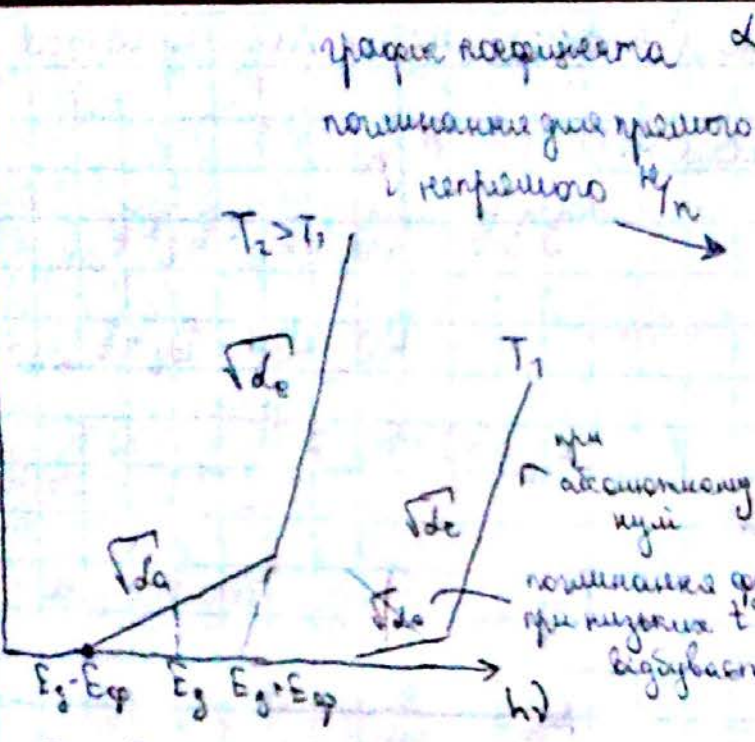 графік коефіцієнта α
поглинання для прямого
і непрямого н/п
T₂>T₁
√αe
T₁
при
абсолютному
нулі
√αe
√αa
поглинання ф
√αa
при низьких t°
відбуваєт
Eg-Eф
Eg
Eg+Eф
hν